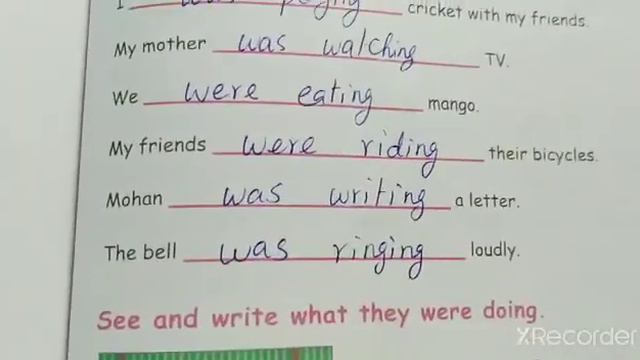 I was playing cricket with my friends.
My mother was watching TV.
We were eating mango.
My friends were riding their bicycles.
Mohan was writing a letter.
The bell was ringing loudly.
See and write what they were doing.
XRecorder